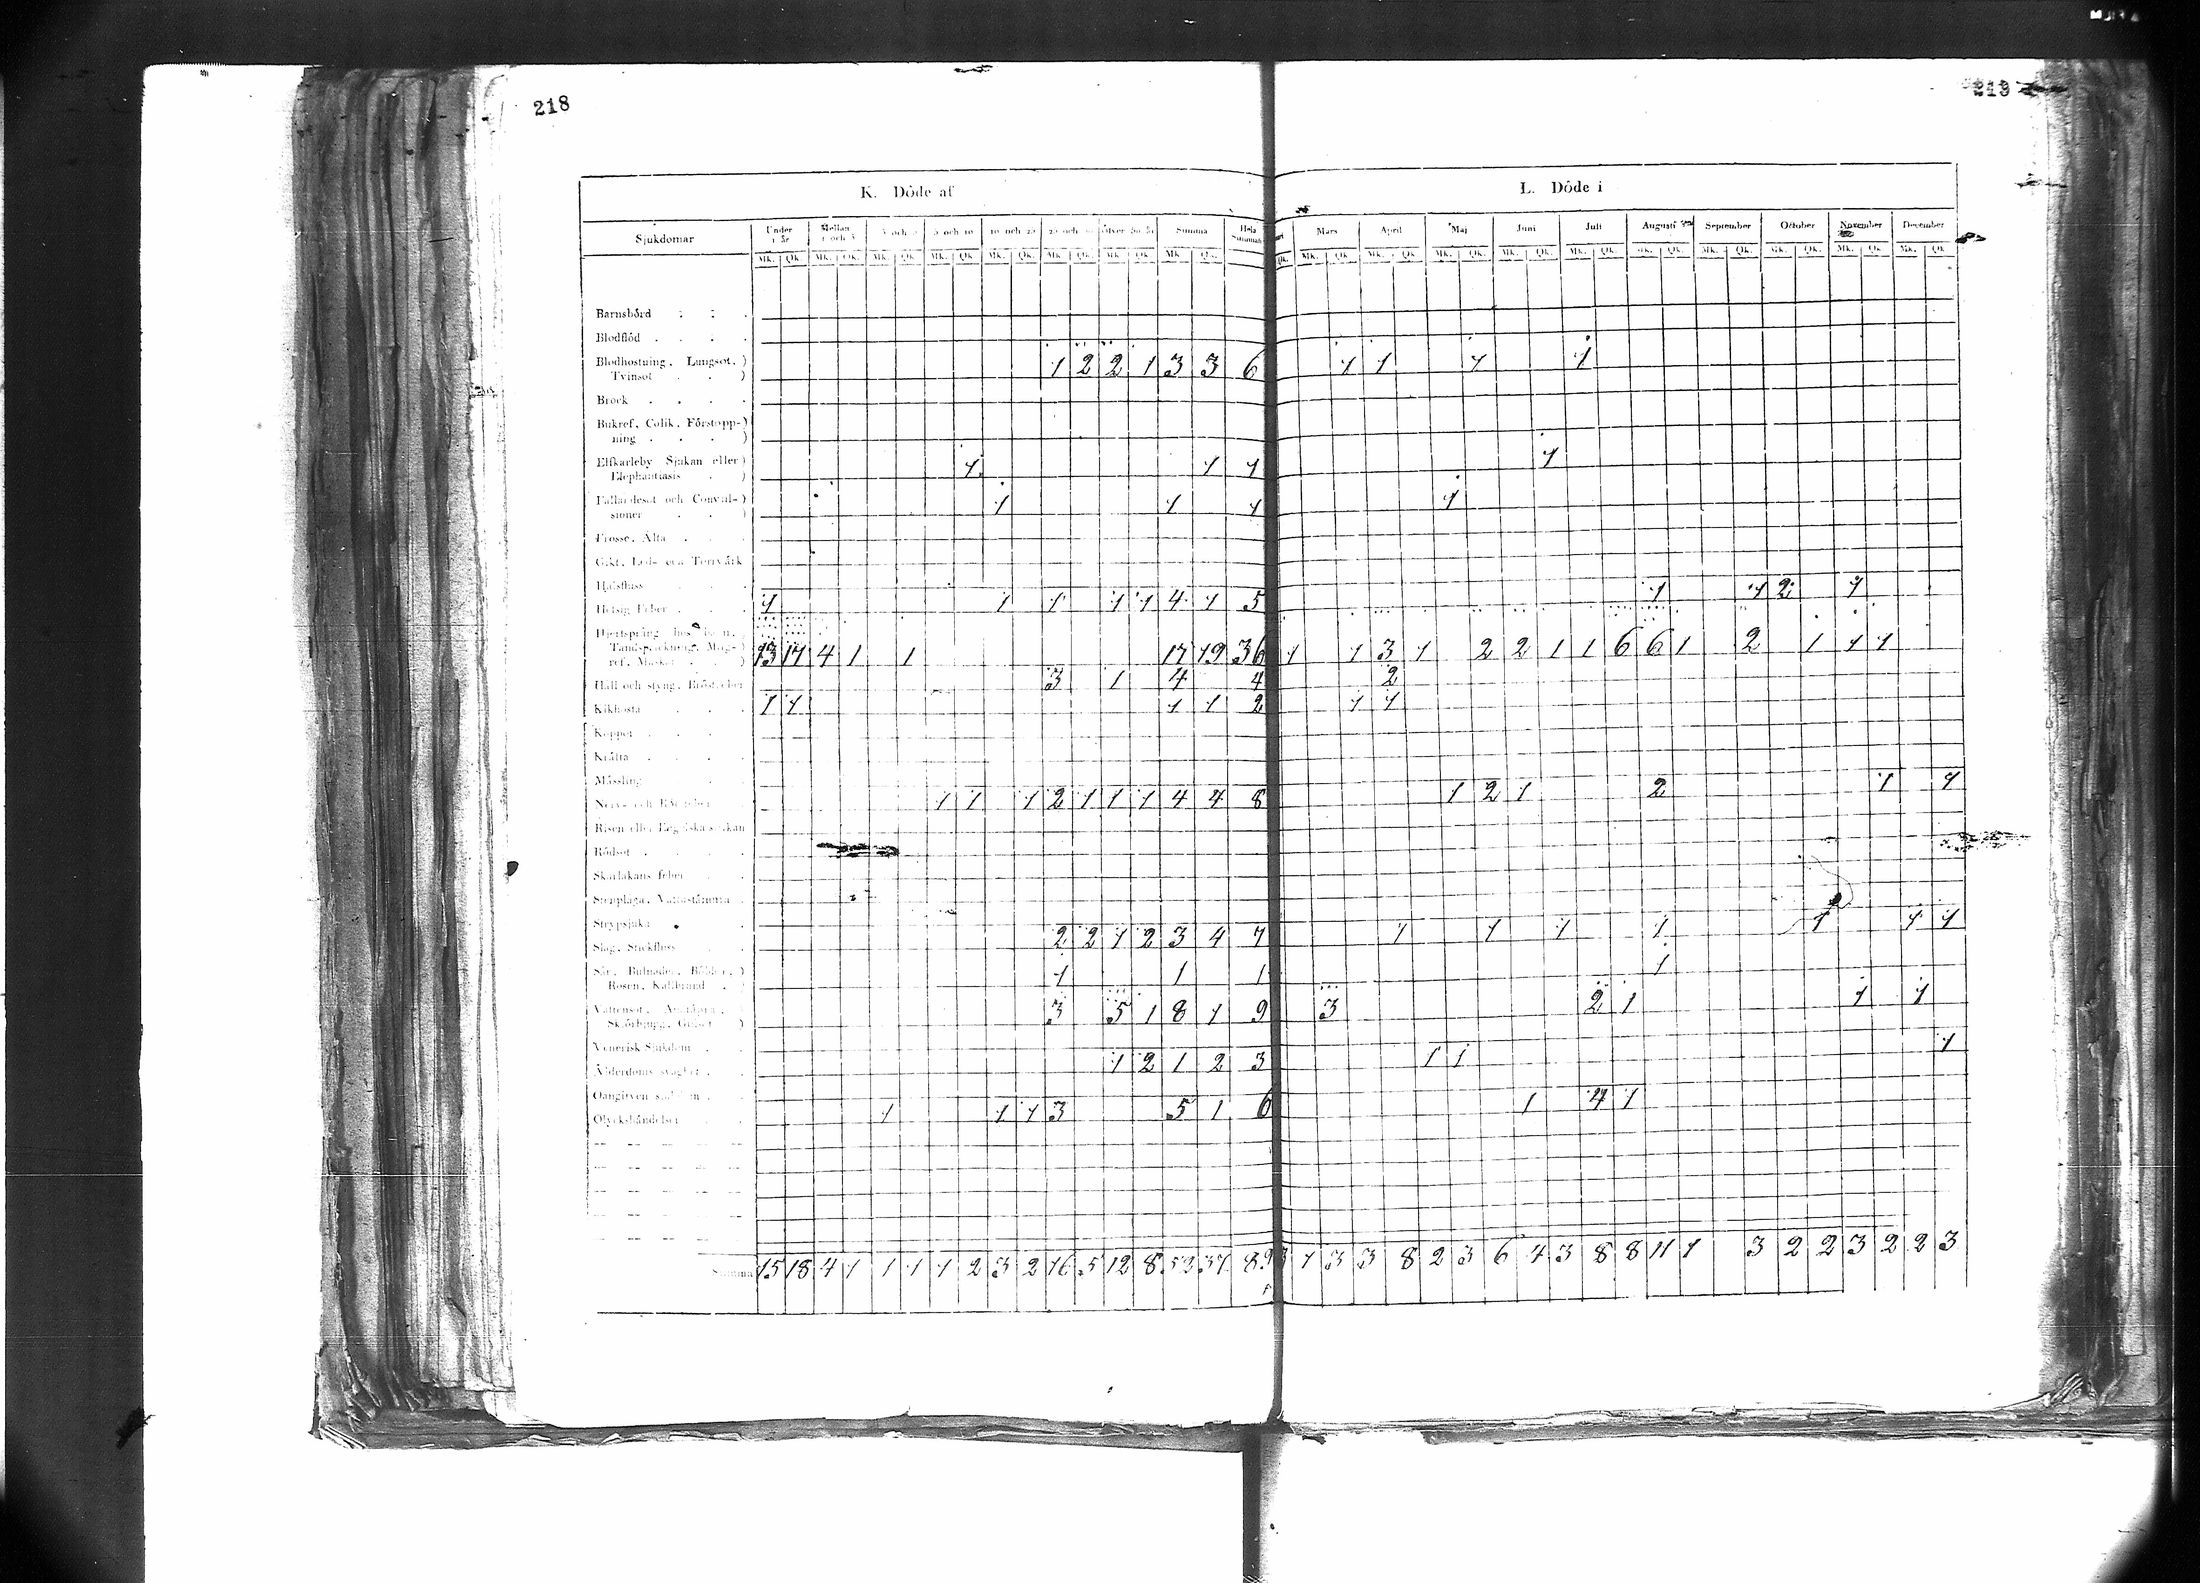 218
219
K. Döde af
L. Döde i
Sjukdomar Under 1 år Mellan 1 och 3 3 och 5 5 och 10 10 och 25 25 och 50 öfver 50 år Summa Hela Summan
Mars April Maj Juni Juli Augusti September October November December
Mk. Qk. Mk. Qk. Mk. Qk. Mk. Qk. Mk. Qk. Mk. Qk. Mk. Qk. Mk. Qk.
Qk. Mk. Qk. Mk. Qk. Mk. Qk. Mk. Qk. Mk. Qk. Mk. Qk. Mk. Qk. Mk. Qk. Mk. Qk. Mk. Qk.
Barnsbörd
Blodflöd
Blodhostning, Lungsot,
Tvinsot 1 2 2 1 3 3 6 1 1 1 1
Bråck
Bukref, Colik, Förstopp-
ning
Elfkarleby Sjukan eller
Elephantiasis 1 1 1 1
Fallandesot och Convul-
sioner 1 1 1 1
Frosse, Älta
Gikt, Led- och Torrvärk
Halsfluss
Hetsig Feber 1 1 1 1 1 4 1 5 1 1 2 1
Hjertsprång hos barn,
Tandsprickning, Mag-
ref, Maskar 13 17 4 1 1 17 19 36 1 1 3 1 2 2 1 1 6 6 1 2 1 1 1
Håll och styng, Bröstfeber 3 1 4 4 2
Kikhosta 1 1 1 1 2 1 1
Koppor
Kräfta
Mässling
Nerv- och Rötfeber 1 1 1 2 1 1 1 4 4 8 1 2 1 2 1 1
Risen eller Engelska sjukan
Rödsot
Skarlakans feber
Stenplåga, Vattustämma
Strypsjuka
Slag, Stickfluss 2 2 1 2 3 4 7 1 1 1 1 1 1 1
Sår, Bulnader, Bölder,
Rosen, Kallbrand 1 1 1 1
Vattensot,
Skörbjugg, Gulsot 3 5 1 8 1 9 3 2 1 1 1
Venerisk Sjukdom
Ålderdoms svaghet 1 2 1 2 3 1 1 1
Oangifven sjukdom
Olyckshändelser 1 1 1 3 5 1 6 1 4 1
Summa 15 18 4 1 1 1 1 2 3 2 16 5 12 8 52 37 89 3 1 3 3 8 2 3 6 4 3 8 8 11 1 3 2 2 3 2 2 3